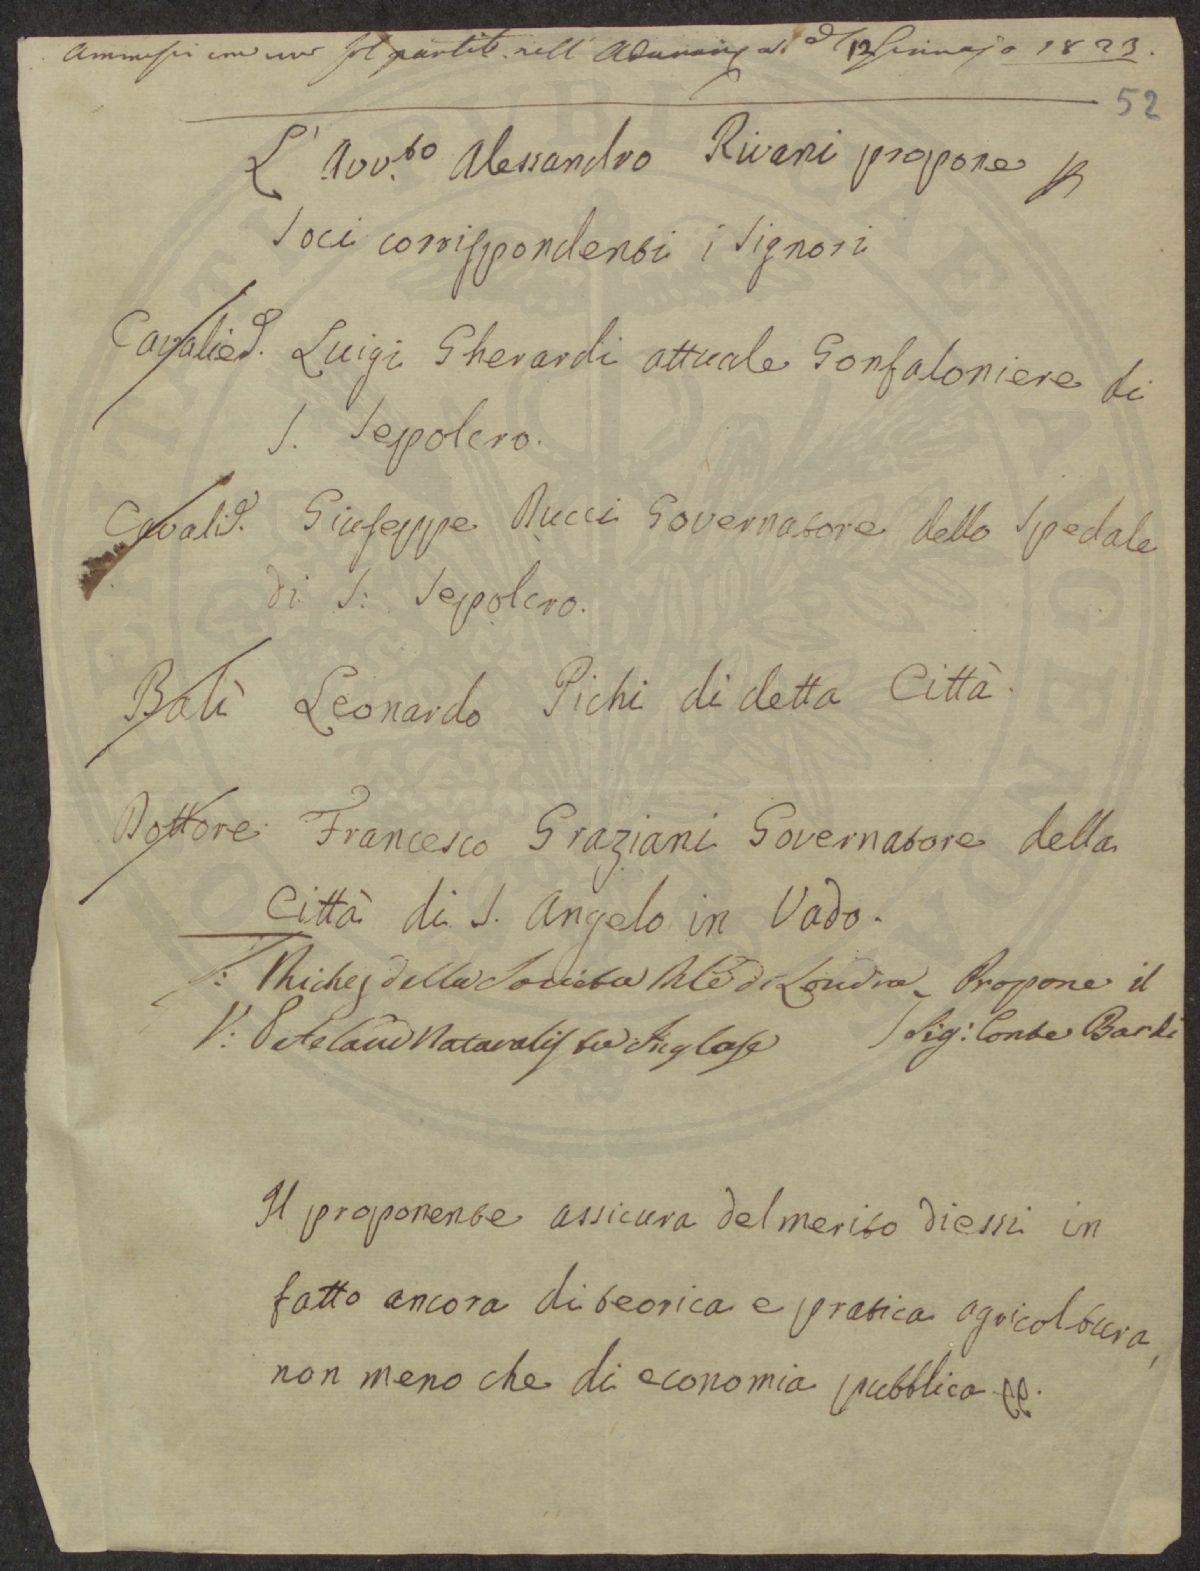 Ammessi con un sol partito nell' Adunanza de' 12 Gennajo 1823.
52
L' Avv.to Alessandro Rivani propone p
Soci corrispondenti i Signori
Cavalier. Luigi Gherardi attuale Gonfaloniere di
S. Sepolcro.
Cavalie. Giuseppe Ducci Governatore dello Spedale
di S: Sepolcro.
Balì Leonardo Pichi di detta Città.
Dottore Francesco Graziani Governatore della
Città di S. Angelo in Vado.
della Società di Londra Propone il
V: Naturalista Inglese Sig: Conte Bardi
Il proponente assicura del merito di essi in
fatto ancora di teorica e pratica agricoltura,
non meno che di economia pubblica